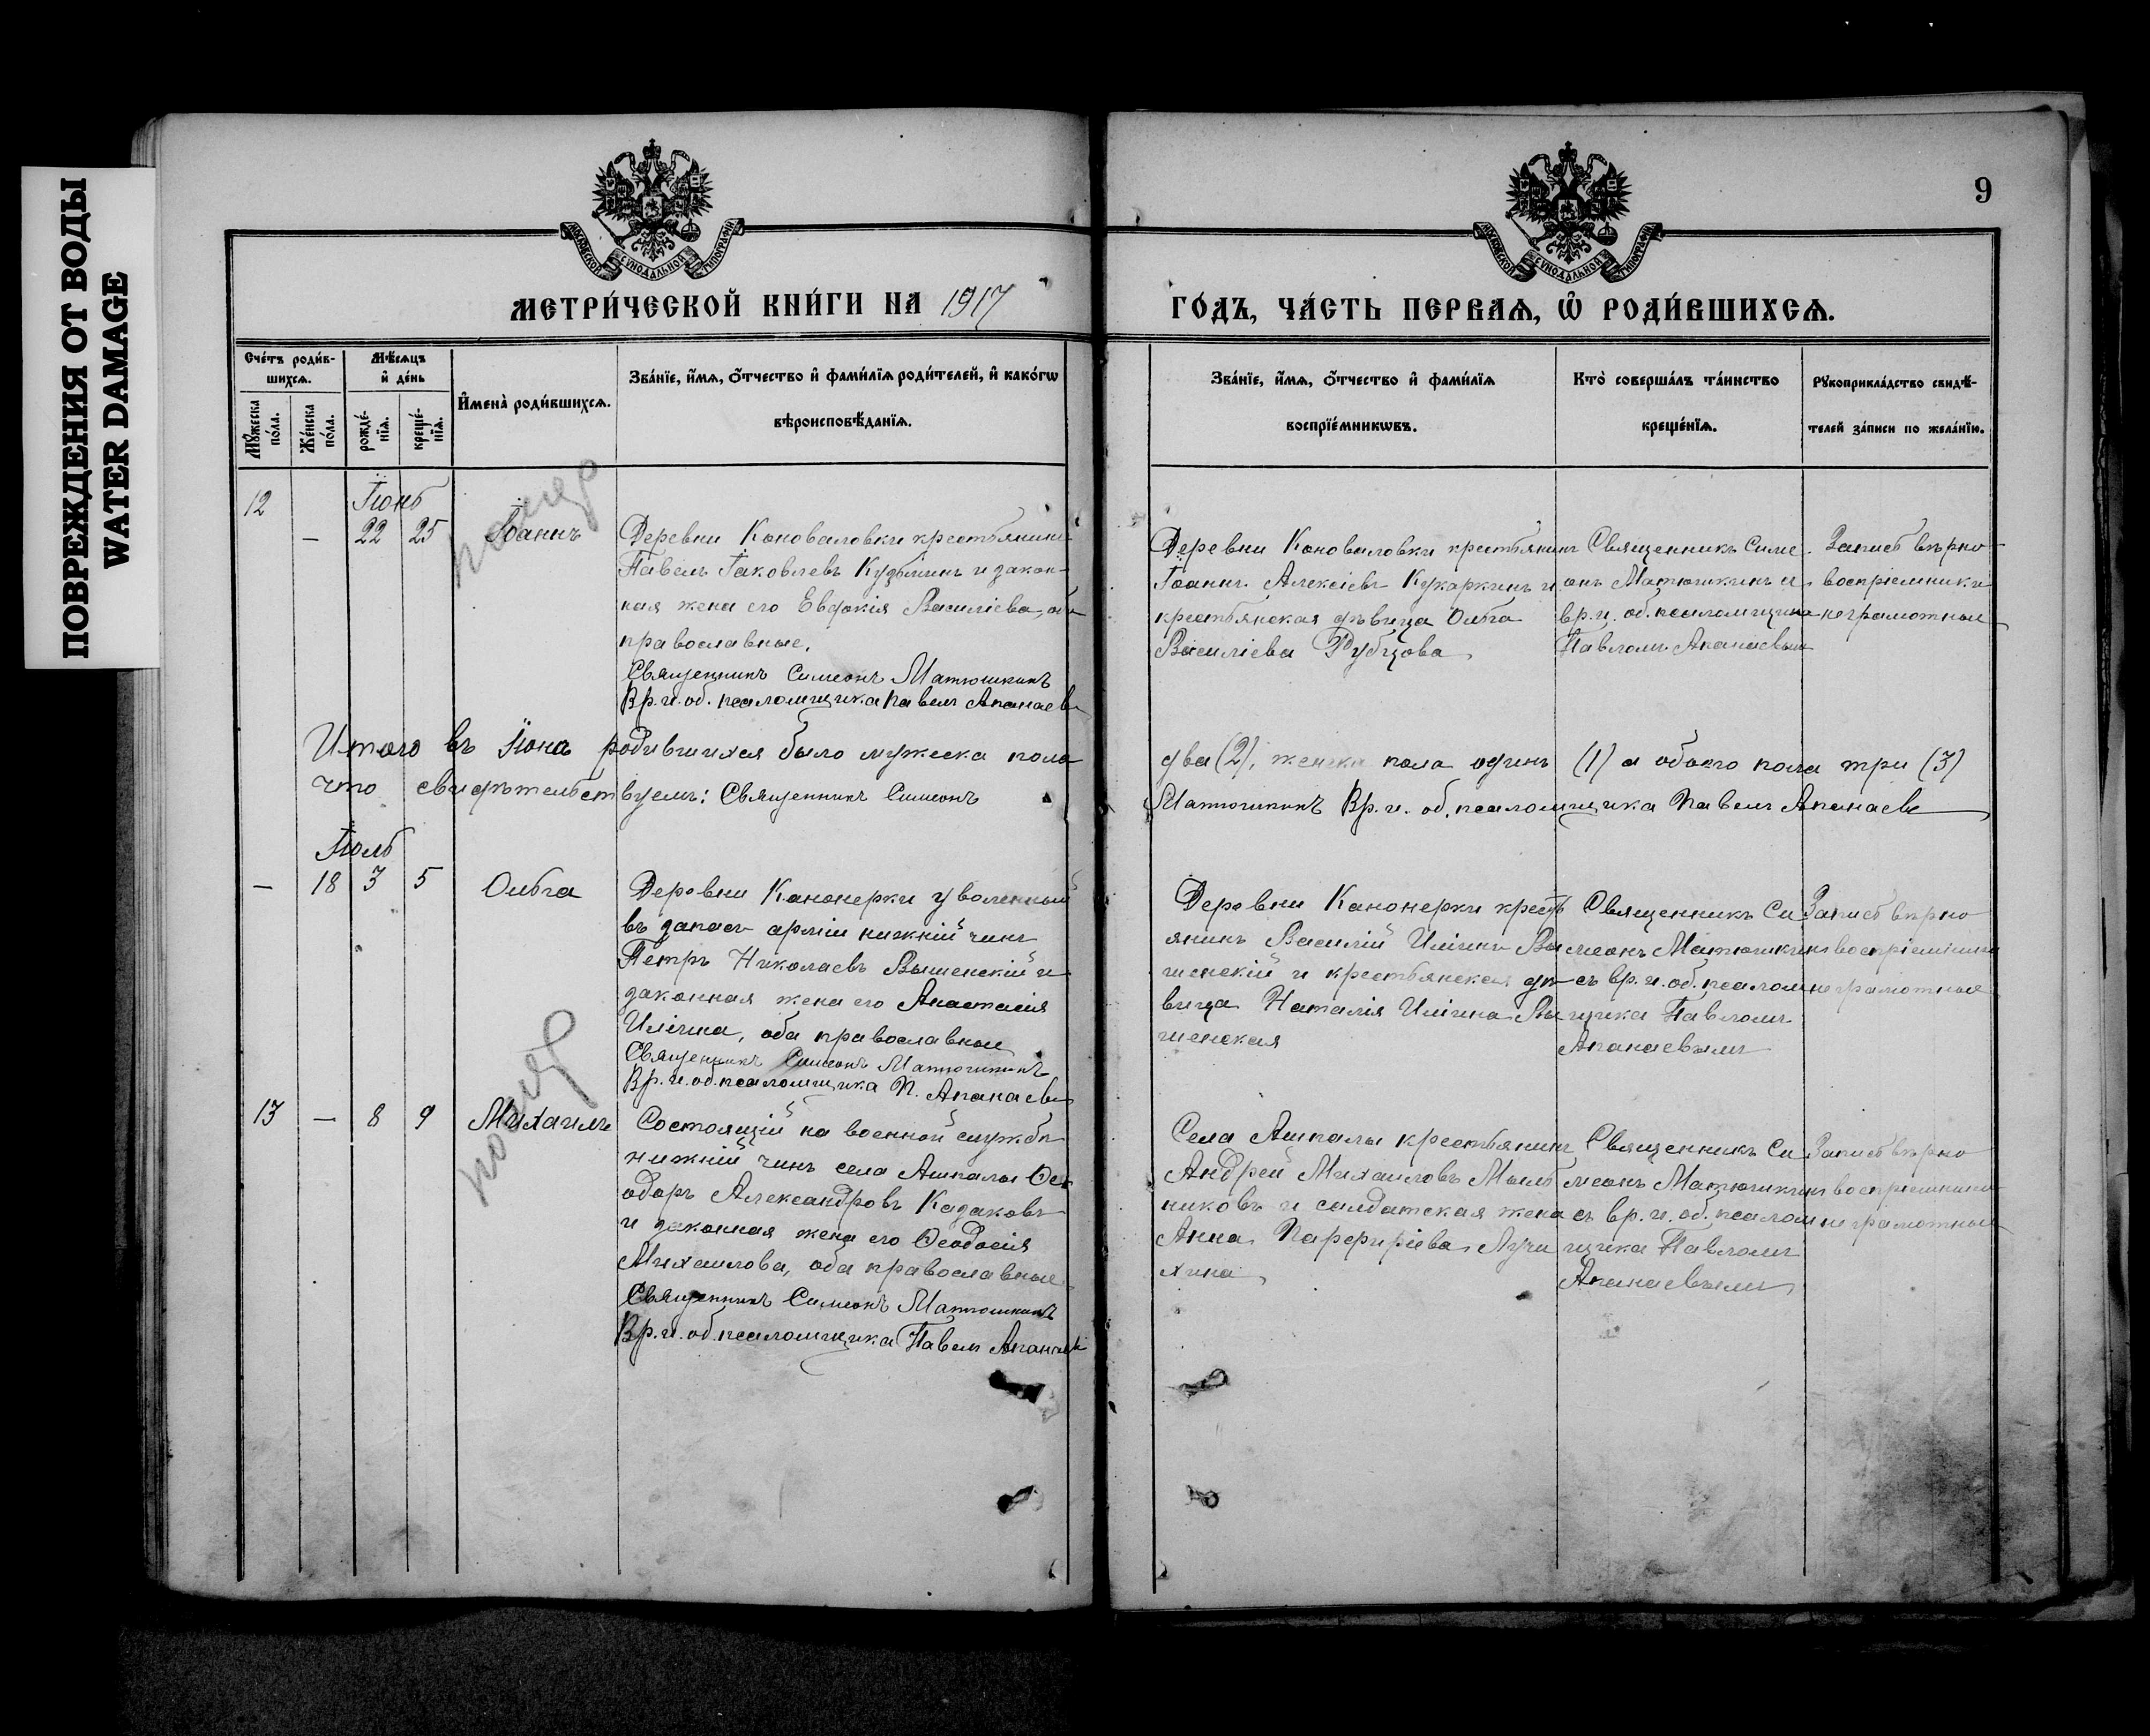 ПОВРЕЖДЕНИЯ ОТ ВОДЫ
WATER DAMAGE
9
МОСКОВСКОЙ СѴНОДАЛЬНОЙ ТИПОГРАФІИ
МОСКОВСКОЙ СѴНОДАЛЬНОЙ ТИПОГРАФІИ
МЕТРИ́ЧЕСКОЙ КНИ́ГИ НА 1917
ГО́ДЪ, ЧА́СТЬ ПЕРВАѦ, Ѡ҆ РОДИ́ВШИХСѦ.
Сче́тъ роди́в-
шихсѧ.
Мѣ́сѧцъ
и҆ де́нь
Мꙋ́жеска по́ла.
Же́нска по́ла.
рожде́-нїѧ.
креще́-нїѧ.
И҆мена̀ роди́вшихсѧ.
Зва́нїе, и҆́мѧ, ѻ҆́тчество и҆ фами́лїѧ роди́телей, и҆ како́гѡ
вѣроисповѣ́данїѧ.
Зва́нїе, и҆́мѧ, ѻ҆́тчество и҆ фами́лїѧ
воспрїе́мникѡвъ.
Кто̀ соверша́лъ та́инство
креще́нїѧ.
Рꙋкоприкла́дство свидѣ́-
телей за́писи по жела́нїю.
12
Іюнь
— 22 25 Іоаннъ
Деревни Коноваловки крестьянинъ
Павелъ Іаковлевъ Кузьминъ и закон-
ная жена его Евдокія Василіева, оба
православные.
Священникъ Симеонъ Матюшкинъ
Вр. и. об. псаломщика Павелъ Апанаевъ
Деревни Коноваловки крестьянинъ
Іоаннъ Алексіевъ Кукаркинъ и
крестьянская дѣвица Ольга
Василіева Рубцова
Священникъ Симе-
онъ Матюшкинъ и
вр. и. об. псаломщика
Павломъ Апанаевым
Запись вѣрно
воспріемники
неграмотные
Итого въ Іюнѣ родившихся было мужеска пола два (2), женска пола одинъ (1) а обоего пола три (3)
что свидѣтельствуемъ: Священникъ Симеонъ Матюшкинъ Вр. и. об. псаломщика Павелъ Апанаевъ
Іюль
— 18 3 5 Ольга
Деревни Канонерки уволенный
въ запасъ арміи нижній чинъ
Петръ Николаевъ Вышенскій и
законная жена его Анастасія
Иліина, оба православные
Священникъ Симеонъ Матюшкинъ
Вр. и. об. псаломщика П. Апанаевъ
Деревни Канонерки кресть
янинъ Василій Иліинъ Вы
шенскій и крестьянская дѣ
вица Наталія Иліина Вы
шенская
Священникъ Си
меонъ Матюшкинъ
съ вр. и. об. псалом
щика Павломъ
Апанаевымъ
Запись вѣрно
воспріемники
неграмотные
13 — 8 9 Михаилъ
Состоящій на военной службѣ
нижній чинъ села Ашпалы Ѳе
одоръ Александровъ Казаковъ
и законная жена его Ѳеодосія
Михаилова, оба православные
Священникъ Симеонъ Матюшкинъ
Вр. и. об. псаломщика Павелъ Апанаевъ
Села Ашпалы крестьянинъ
Андрей Михаиловъ Мыль
никовъ и солдатская жена
Анна Парфиріева Лучи
хина
Священникъ Си
меонъ Матюшкинъ
съ вр. и. об. псалом
щика Павломъ
Апанаевымъ
Запись вѣрно
воспріемники
неграмотные